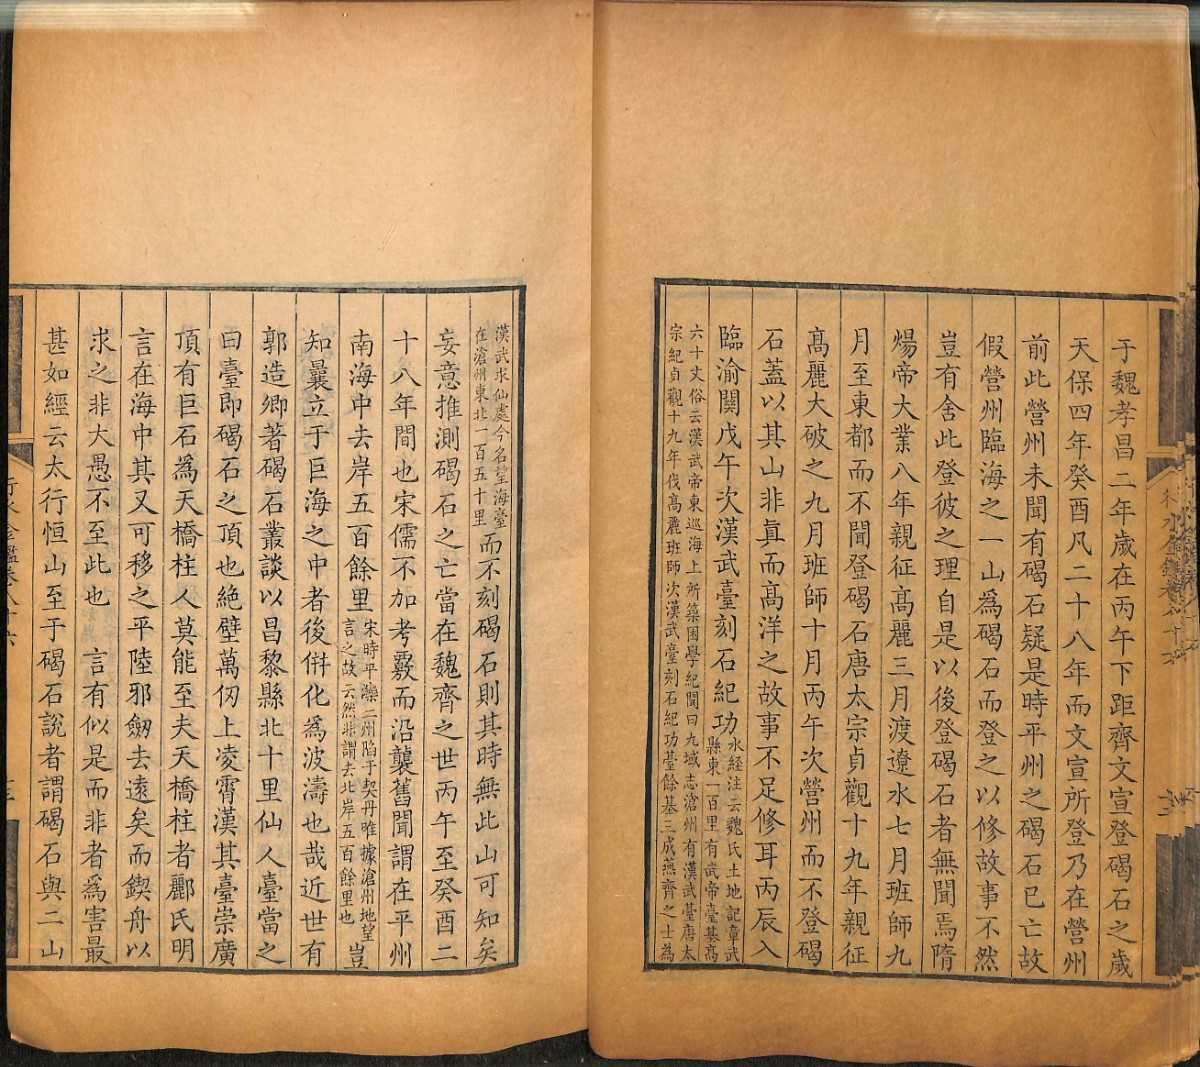 于魏孝昌二年歲在丙午下距齊文宣登碣石之歲
天保四年癸酉凡二十八年而文宣所登乃在營州
前此營州未聞有碣石疑是時平州之碣石已亡故
假營州臨海之一山為碣石而登之以修故事不然
豈有舍此登彼之理自是以後登碣石者無聞焉隋
煬帝大業八年親征髙麗三月渡遼水七月班師九
月至東都而不聞登碣石唐太宗貞觀十九年親征
髙麗大破之九月班師十月丙午次營州而不登碣
石蓋以其山非真而髙洋之故事不足修耳丙辰入
臨渝關戊午次漢武臺刻石紀功
水經注云魏氏土地記章武
縣東一百里有武帝臺基髙
六十丈俗云漢武帝東巡海上所築困學紀聞曰九域志滄州有漢武臺唐太
宗紀貞觀十九年伐髙麗班師次漢武臺刻石紀功臺餘基三成燕齊之士為
漢武求仙處今名望海臺
在滄州東北一百五十里
而不刻碣石則其時無此山可知矣
妄意推測碣石之亡當在魏齊之世丙午至癸酉二
十八年間也宋儒不加考覈而沿襲舊聞謂在平州
南海中去岸五百餘里
宋時平灤二州陷于契丹唯據滄州地望
言之故云然非謂去北岸五百餘里也
豈
知曩立于巨海之中者後併化為波濤也哉近世有
郭造卿著碣石叢談以昌黎縣北十里仙人臺當之
曰臺即碣石之頂也絶壁萬仞上凌霄漢其臺崇廣
頂有巨石為天橋柱人莫能至夫天橋柱者酈氏明
言在海中其又可移之平陸邪劒去遠矣而鍥舟以
求之非大愚不至此也　言有似是而非者為害最
甚如經云太行恒山至于碣石説者謂碣石與二山
行水金鑑卷八十六